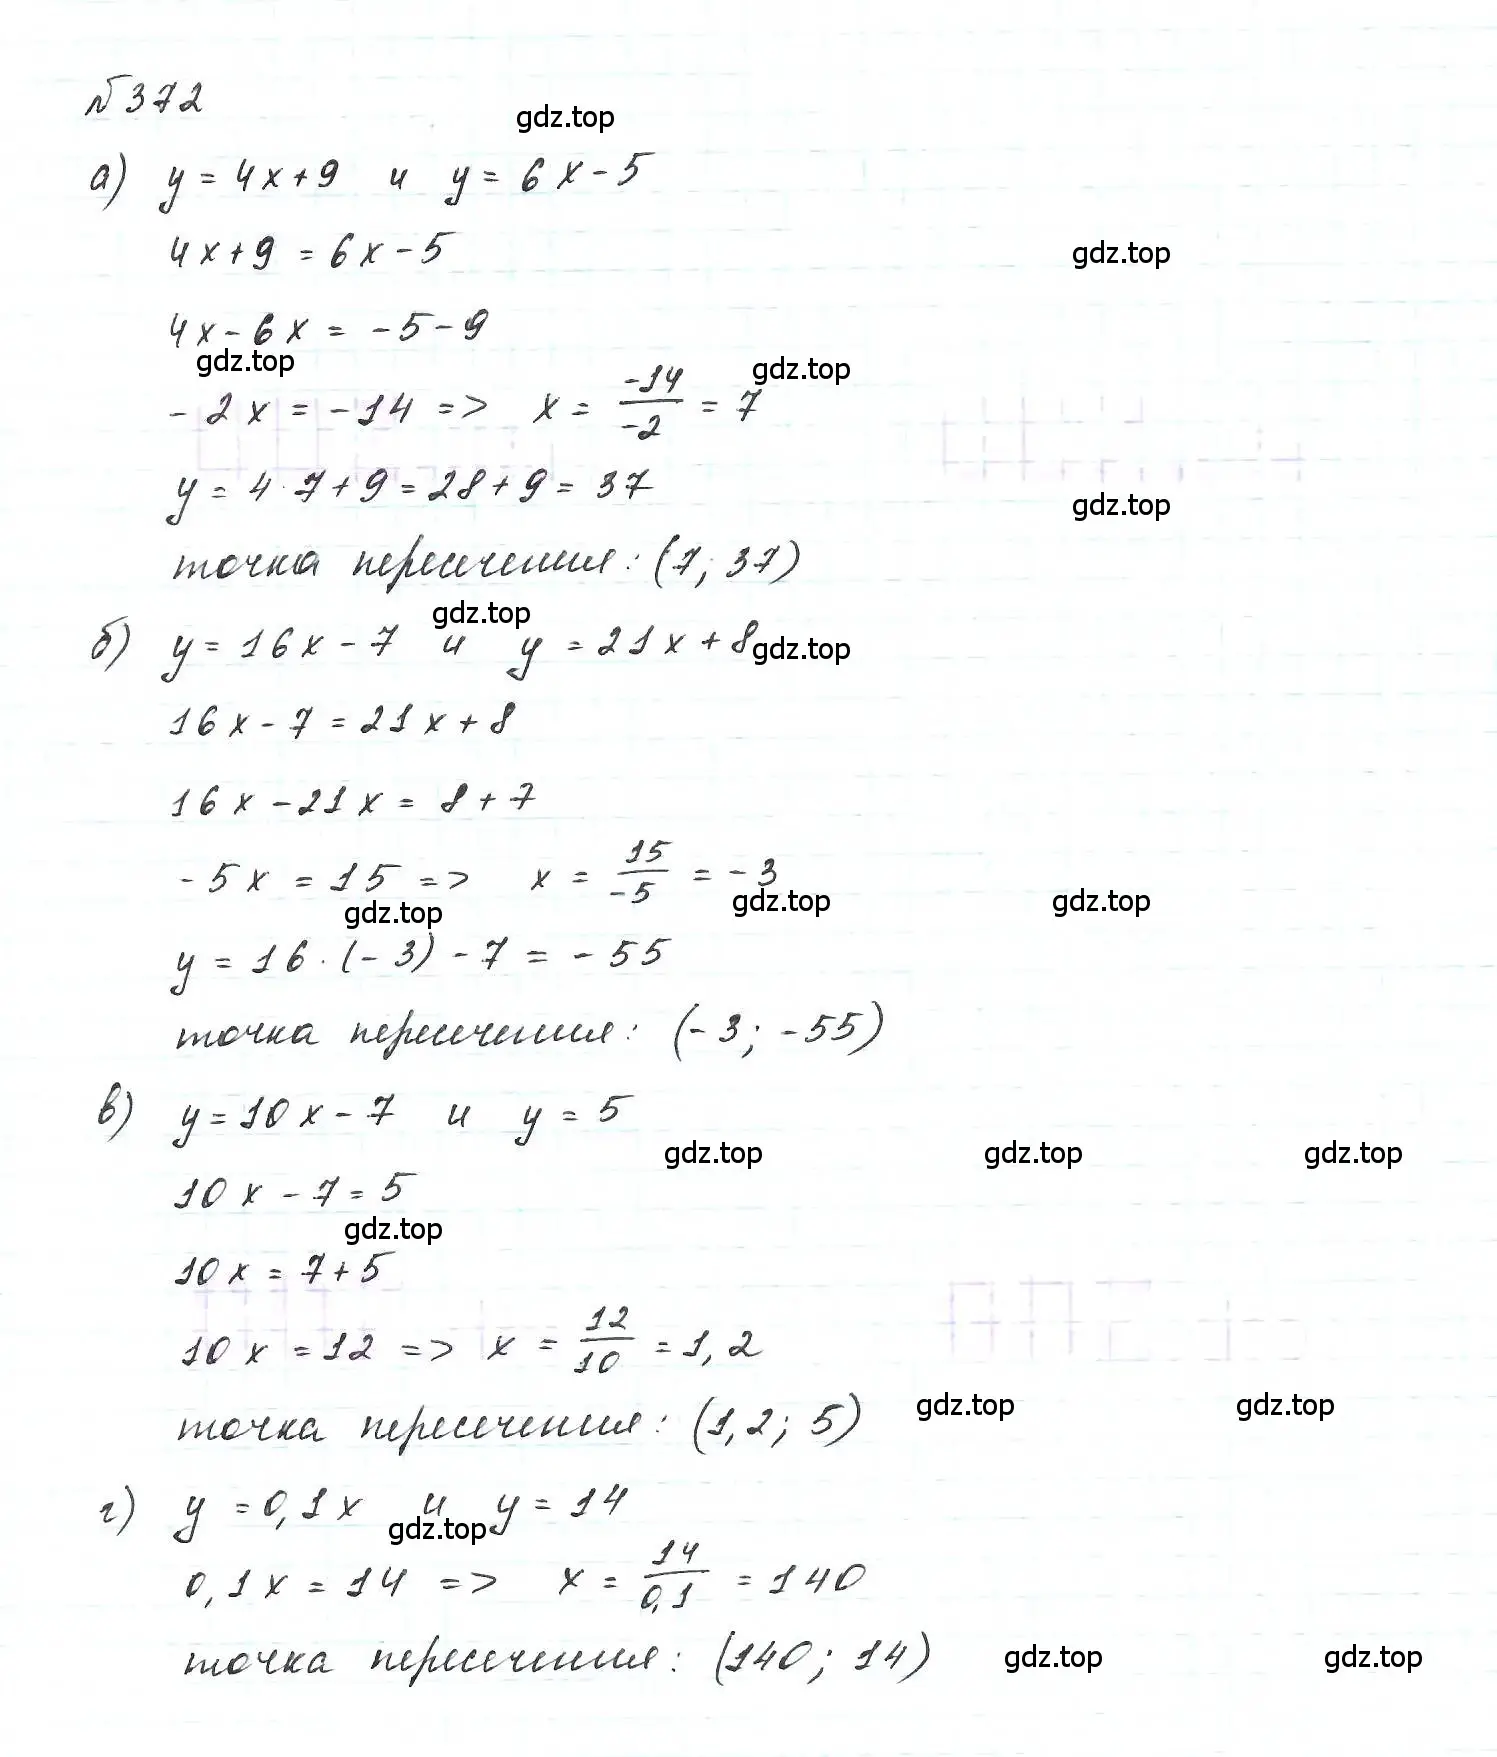 №372
gdz.top
а) y = 4x + 9 и y = 6x - 5
4x + 9 = 6x - 5
gdz.top
4x - 6x = -5 - 9
gdz.top gdz.top
-2x = -14 => x = -14/-2 = 7
y = 4 · 7 + 9 = 28 + 9 = 37
gdz.top
точка пересечения: (7; 37)
gdz.top
б) y = 16x - 7 и y = 21x + 8
gdz.top
16x - 7 = 21x + 8
16x - 21x = 8 + 7
-5x = 15 => x = 15/-5 = -3
gdz.top gdz.top gdz.top
y = 16 · (-3) - 7 = -55
точка пересечения: (-3; -55)
в) y = 10x - 7 и y = 5
gdz.top gdz.top gdz.top
10x - 7 = 5
gdz.top
10x = 7 + 5
10x = 12 => x = 12/10 = 1,2
точка пересечения: (1,2; 5)
gdz.top gdz.top
г) y = 0,1x и y = 14
gdz.top
0,1x = 14 => x = 14/0,1 = 140
точка пересечения: (140; 14)
gdz.top gdz.top